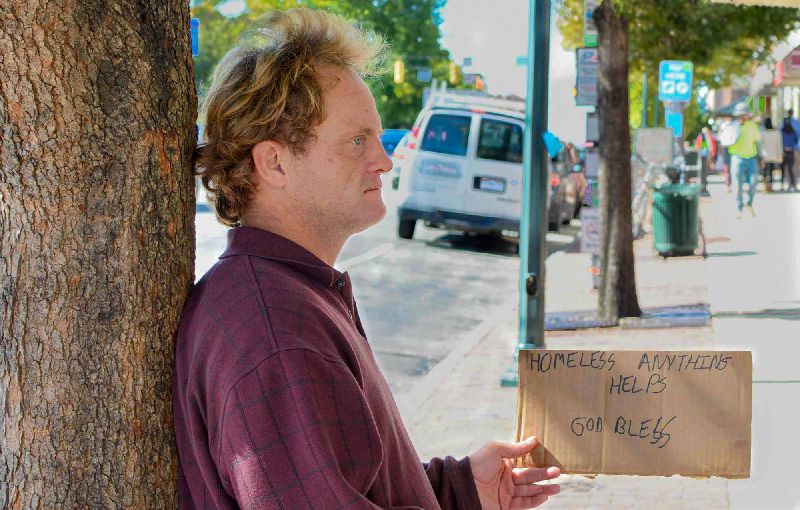 HOMELESS ANYTHING
HELPS
GOD BLESS